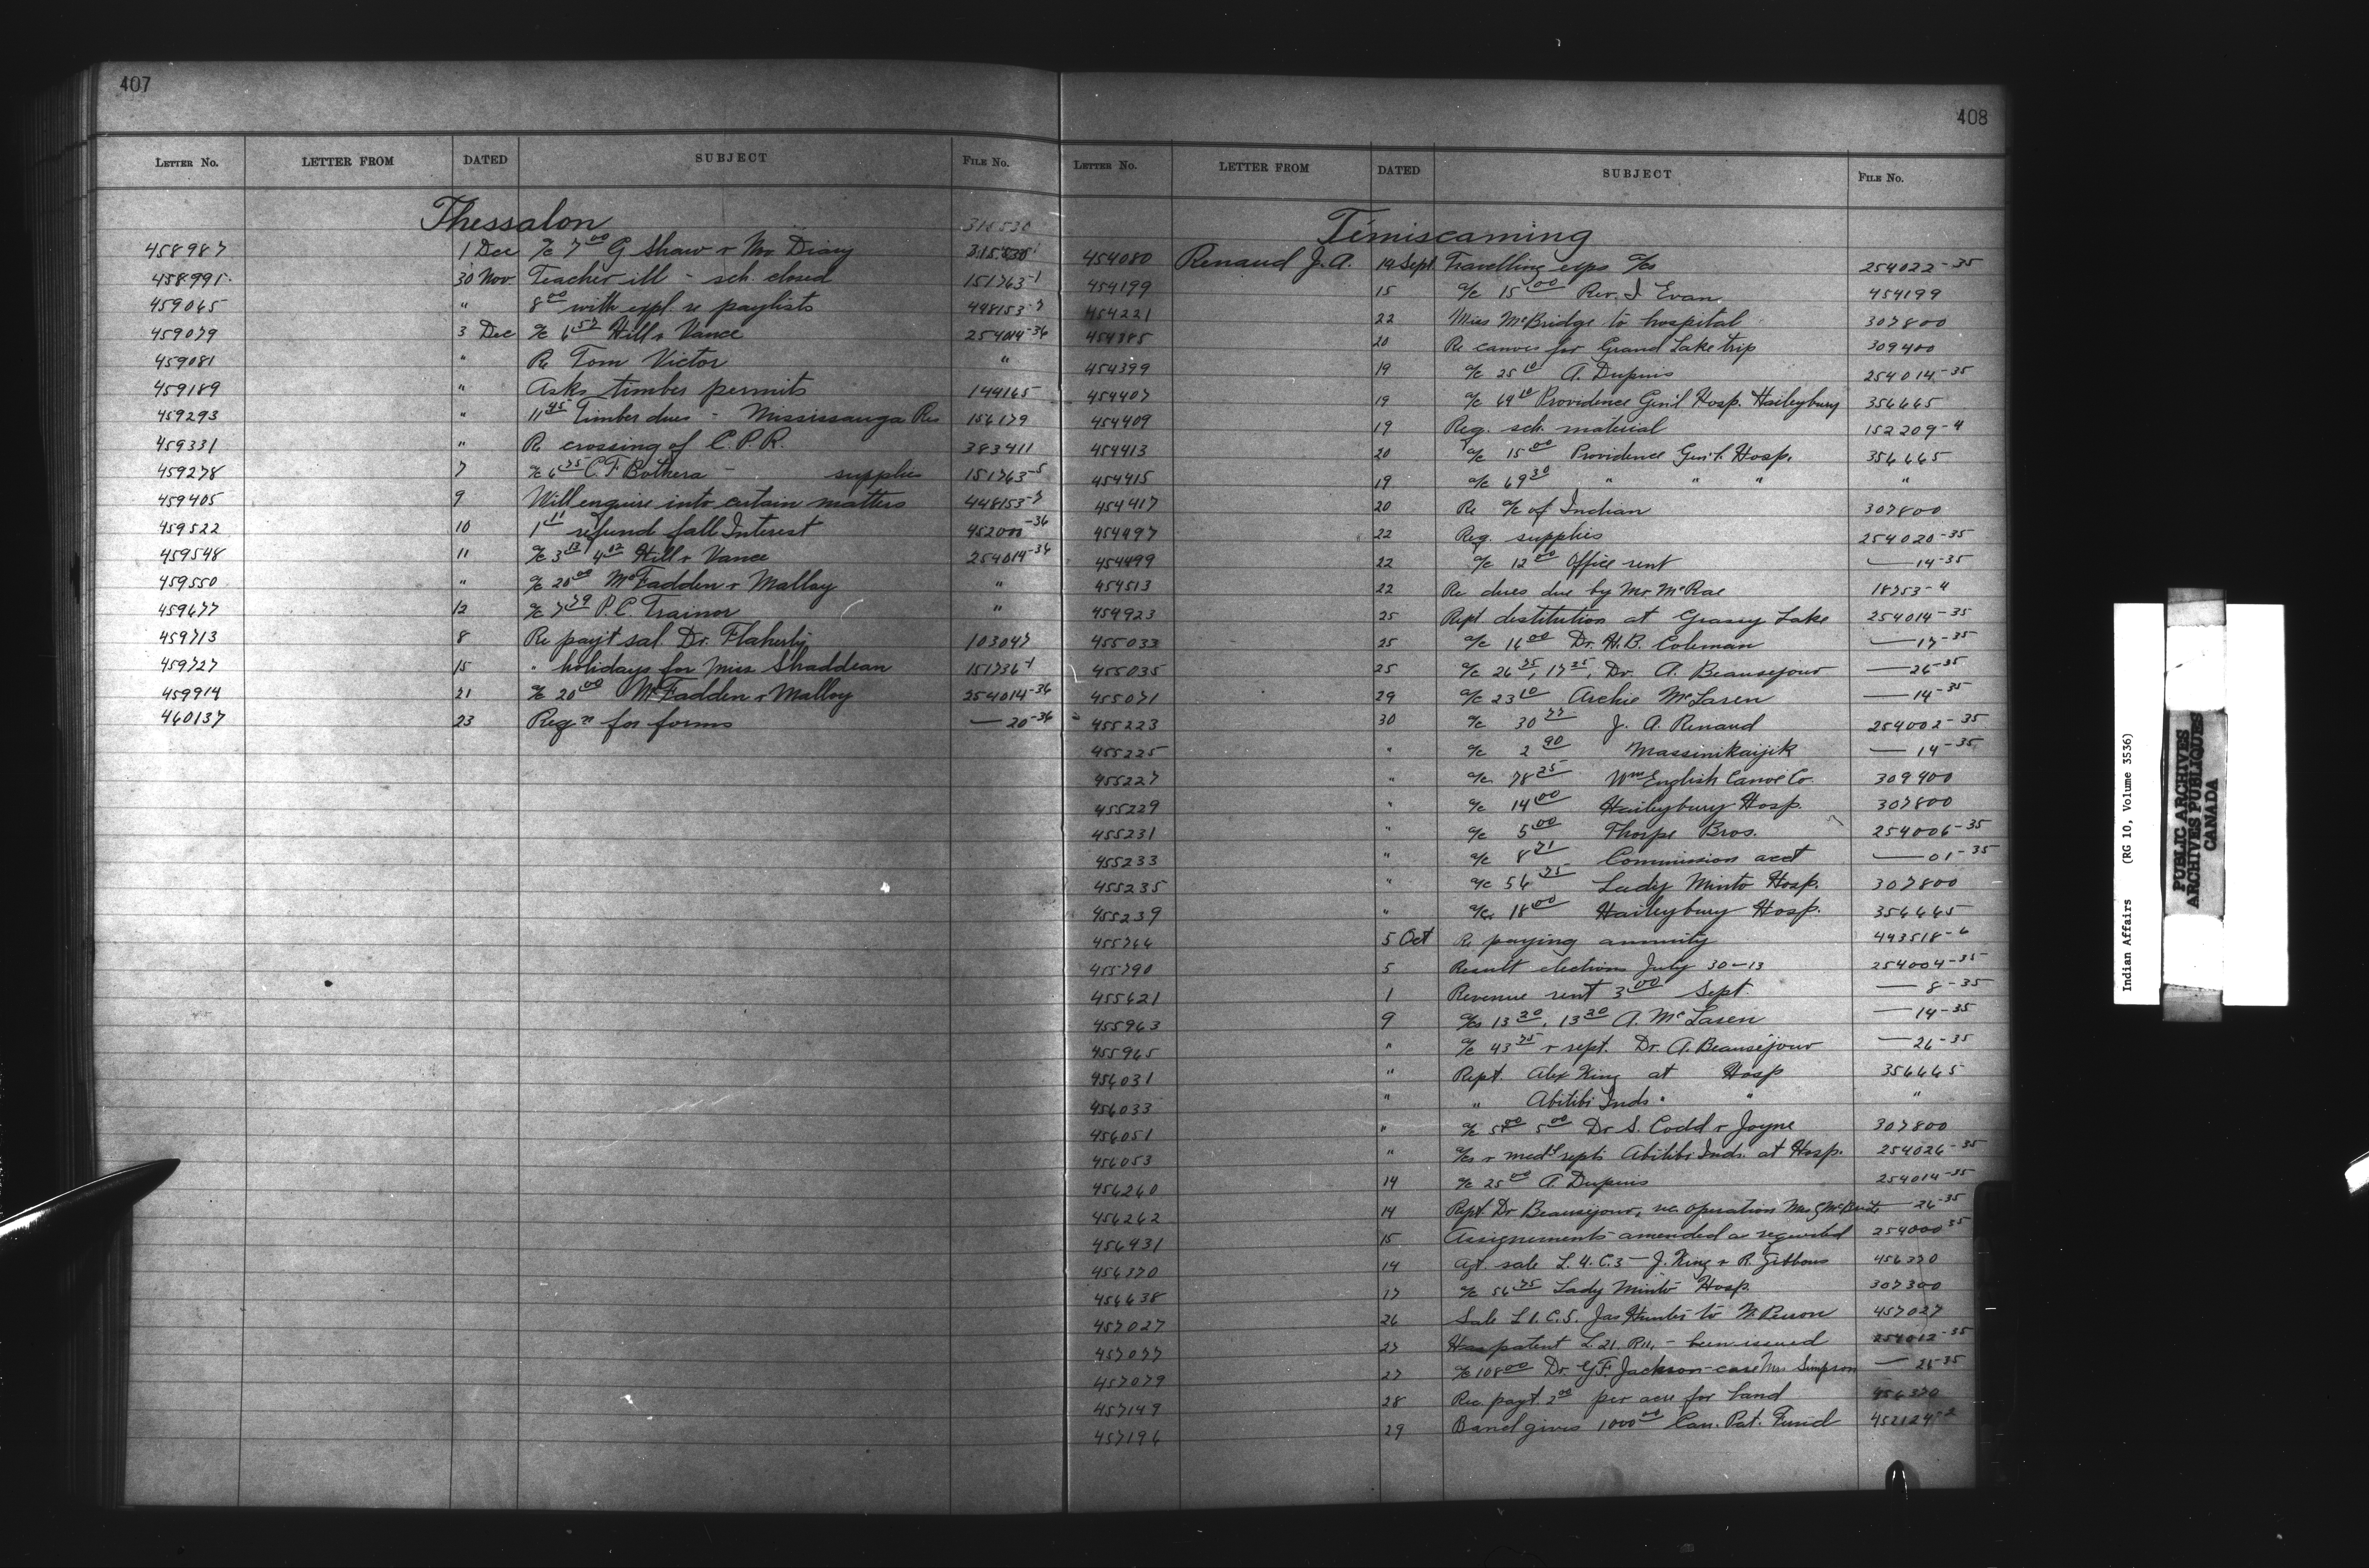 407
LETTER No. LETTER FROM DATED SUBJECT FILE No.
Thessalon 315530
458987 1 Dec a/c 7 00 G Shaw & Mr Diary 315530-1
458991 30 Nov Teacher ill - sch. closed 151763-1
459065 " 8 00 with expl. re paylists 448153-7
459079 3 Dec a/c 6 57 Hill & Vance 254014-36
459081 " Re Tom Victor "
459189 " Asks timber permits 144165
459293 " 11 45 Timber dues - Mississauga Res 156179
459331 " Re crossing of C.P.R. 383411
459278 7 a/c 6 75 C.F. Bothera - supplies 151763-5
459405 9 Will enquire into certain matters 448153-7
459522 10 1 11 refund fall Interest 452000-36
459548 11 a/c 3 13 4 02 Hill & Vance 254014-36
459550 " a/c 20 00 McFadden & Malloy "
459677 12 a/c 7 79 P.C. Trainor "
459713 8 Re payt sal. Dr. Flaherty 103047
459727 15 " holidays for Miss Shaddean 151736-1
459914 21 a/c 20 00 McFadden & Malloy 254014-36
460137 23 Reqn for forms — 20-36
408
LETTER No. LETTER FROM DATED SUBJECT FILE No.
Temiscaming
454080 Renaud J.A. 19 Sept Travelling exps a/cs 254022-35
454199 15 a/c 15 00 Rev. I Evan 454199
454221 22 Miss McBridge to hospital 307800
454385 20 Re canoes for Grand Lake trip 309400
454399 19 a/c 25 10 A. Dupuis 254014-35
454407 19 a/c 69 10 Providence Gen'l Hosp. Haileybury 356665
454409 19 Req. sch. material 152209-4
454413 20 a/c 15 00 Providence Gen'l. Hosp. 356665
454415 19 a/c 69 30 " " " "
454417 20 Re a/c of Indian 307800
454497 22 Req. supplies 254020-35
454499 22 a/c 12 00 Office rent — 14-35
454513 22 Re dues due by Mr. McRae 18753-4
454923 25 Rept destitution at Grassy Lake 254014-35
455033 25 a/c 16 00 Dr. H.B. Coleman — 17-35
455035 25 a/c 26 75, 17 25, Dr. A. Beausejour — 26-35
455071 29 a/c 23 10 Archie McLaren — 14-35
455223 30 a/c 30 77 J. A. Renaud 254002-35
455225 " a/c 2 90 Massinikaijik — 14-35
455227 " a/c 78 25 Wm English Canoe Co. 309400
455229 " a/c 14 00 Haileybury Hosp. 307800
455231 " a/c 5 00 Thorpe Bros. 254006-35
455233 " a/c 8 71 Commission acct — 01-35
455235 " a/c 56 75 Lady Minto Hosp. 307800
455239 " a/c 18 00 Haileybury Hosp. 356665
455766 5 Oct Re paying annuity 443518-6
455790 5 Result elections July 30-13 254004-35
455621 1 Revenue rent 3 00 Sept. — 8-35
455963 9 a/cs 13 20, 13 20 A. McLaren — 14-35
455965 " a/c 43 75 & rept. Dr. A. Beausejour — 26-35
456031 " Rept. Alex King at Hosp 356665
456033 " " Abitibi Inds. " " "
456051 " a/c 5 00 5 00 Dr S. Codd & Joyne 307800
456053 " a/cs & medl repts Abitibi Inds. at Hosp. 254026-35
456260 14 a/c 25 00 A Dupuis 254014-35
456262 14 Rept Dr Beausejour, re operation Mrs McBride — 26-35
456431 15 Assignements amended as required 254000-35
456370 14 Agt. sale L. 4. C. 3 — J. King & R. Gibbons 456370
456638 17 a/c 56 75 Lady Minto Hosp. 307300
457027 26 Sale L 1. C. 5. Jas Hunter to W. Perron 457027
457077 27 Has patent L. 21. R11, - been issued 254012-35
457079 27 a/c 108 00 Dr. G.F. Jackson - case Mrs Simpson — 26-35
457149 28 Rec payt. 2 00 per acre for land 456370
457196 29 Band gives 1000 00 Can. Pat. Fund 452124-2
Indian Affairs (RG 10, Volume 3536)
PUBLIC ARCHIVES
ARCHIVES PUBLIQUES
CANADA